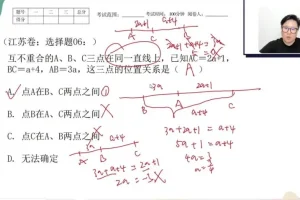 题号 一 二 三 总分
得分
考试时间：100分钟
2a+1 a+4
A C B
(江苏卷：选择题06：)
互不重合的A、B、C三点在同一直线上，已知AC=2a+1，
BC=a+4，AB=3a，这三点的位置关系是（ A ）
A. 点A在B、C两点之间
3a 2a+1
B A C
B. 点B在A、C两点之间 X
a+4
C. 点C在A、B两点之间 X
3a+2a+1=a+4
3a a+4
5a+1=a+4
A B C
D. 无法确定
4a=3
3a+a+4=2a+1
a=3/4
2a=-3 X